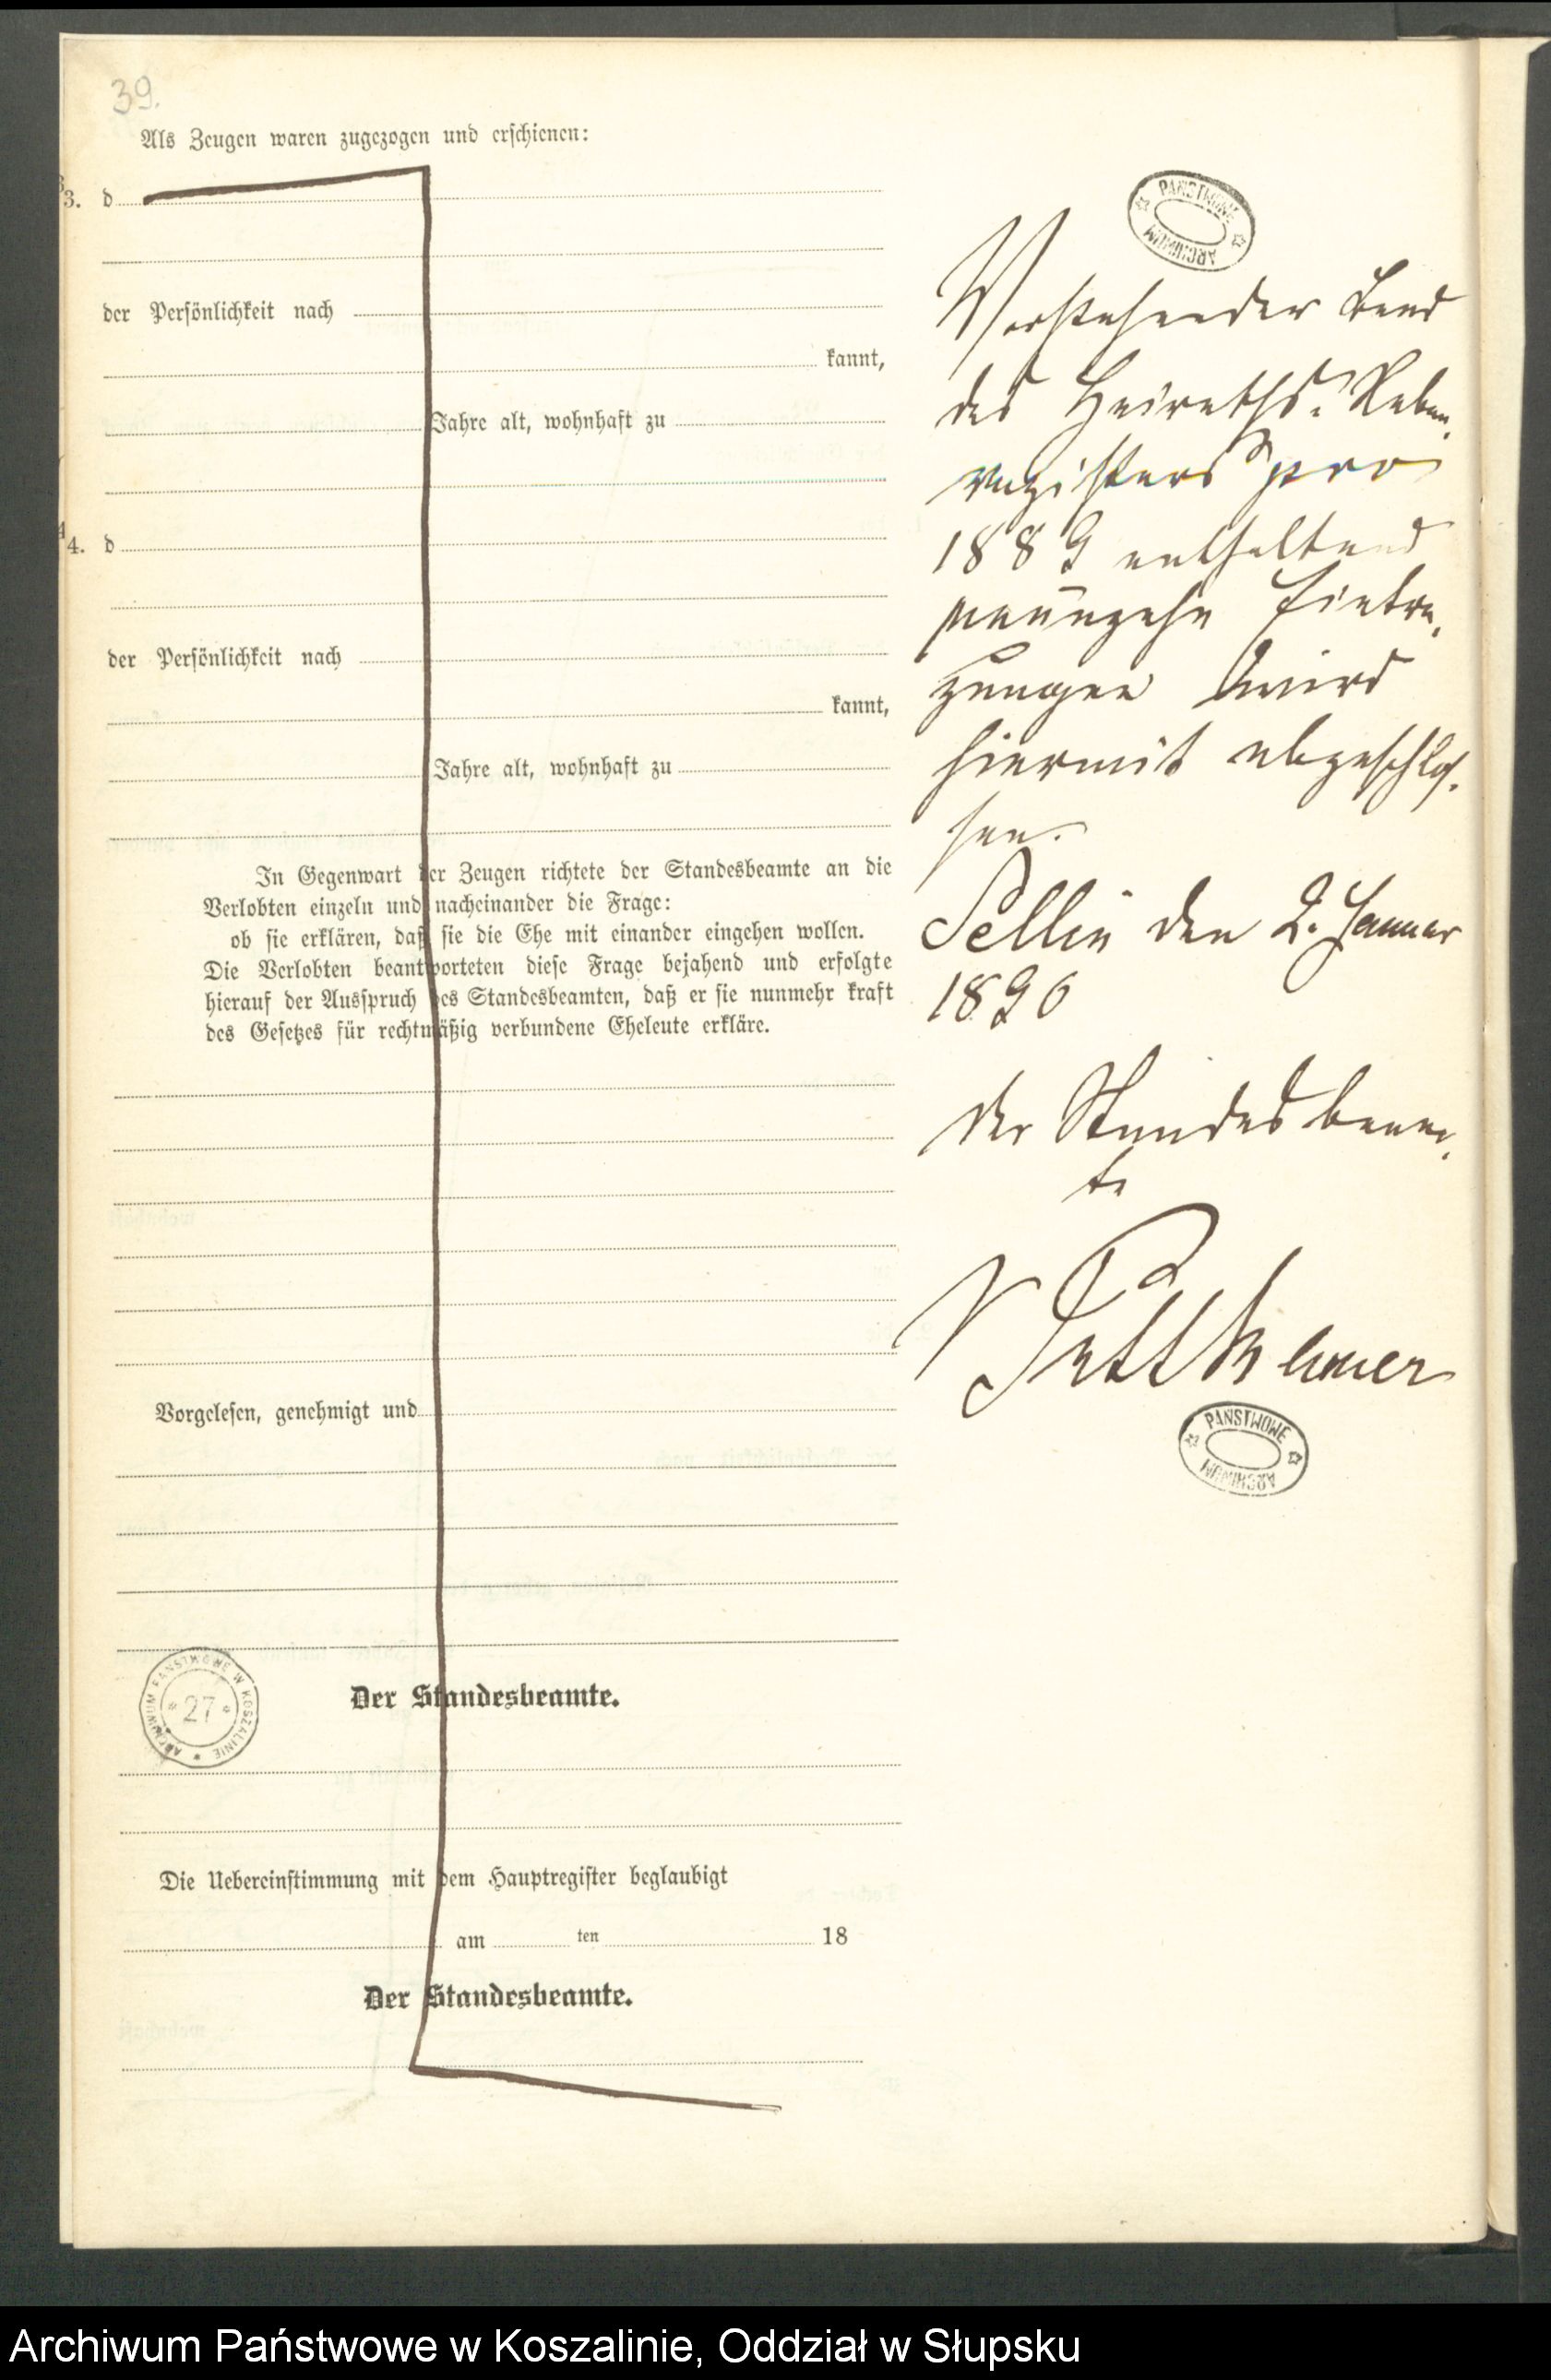 39.
Als Zeugen waren zugezogen und erschienen:
3. d
der Persönlichkeit nach
kannt,
Jahre alt, wohnhaft zu
4. d
der Persönlichkeit nach
kannt,
Jahre alt, wohnhaft zu
In Gegenwart der Zeugen richtete der Standesbeamte an die
Verlobten einzeln und nacheinander die Frage:
ob sie erklären, daß sie die Ehe mit einander eingehen wollen.
Die Verlobten beantworteten diese Frage bejahend und erfolgte
hierauf der Ausspruch des Standesbeamten, daß er sie nunmehr kraft
des Gesetzes für rechtmäßig verbundene Eheleute erkläre.
Vorgelesen, genehmigt und
Der Standesbeamte.
Die Uebereinstimmung mit dem Hauptregister beglaubigt
am ten 18
Der Standesbeamte.
ARCHIWUM PAŃSTWOWE W KOSZALINIE
27
PAŃSTWOWE ARCHIWUM
Vorstehender Band
des Heiraths-Neben-
registers pro
1889 enthaltend
neunzehn Eintra-
gungen wird
hiermit abgeschlos-
sen.
Sellin den 2. Januar
1890
Der Standesbeam-
te
v Puttkamer
PAŃSTWOWE ARCHIWUM
Archiwum Państwowe w Koszalinie, Oddział w Słupsku